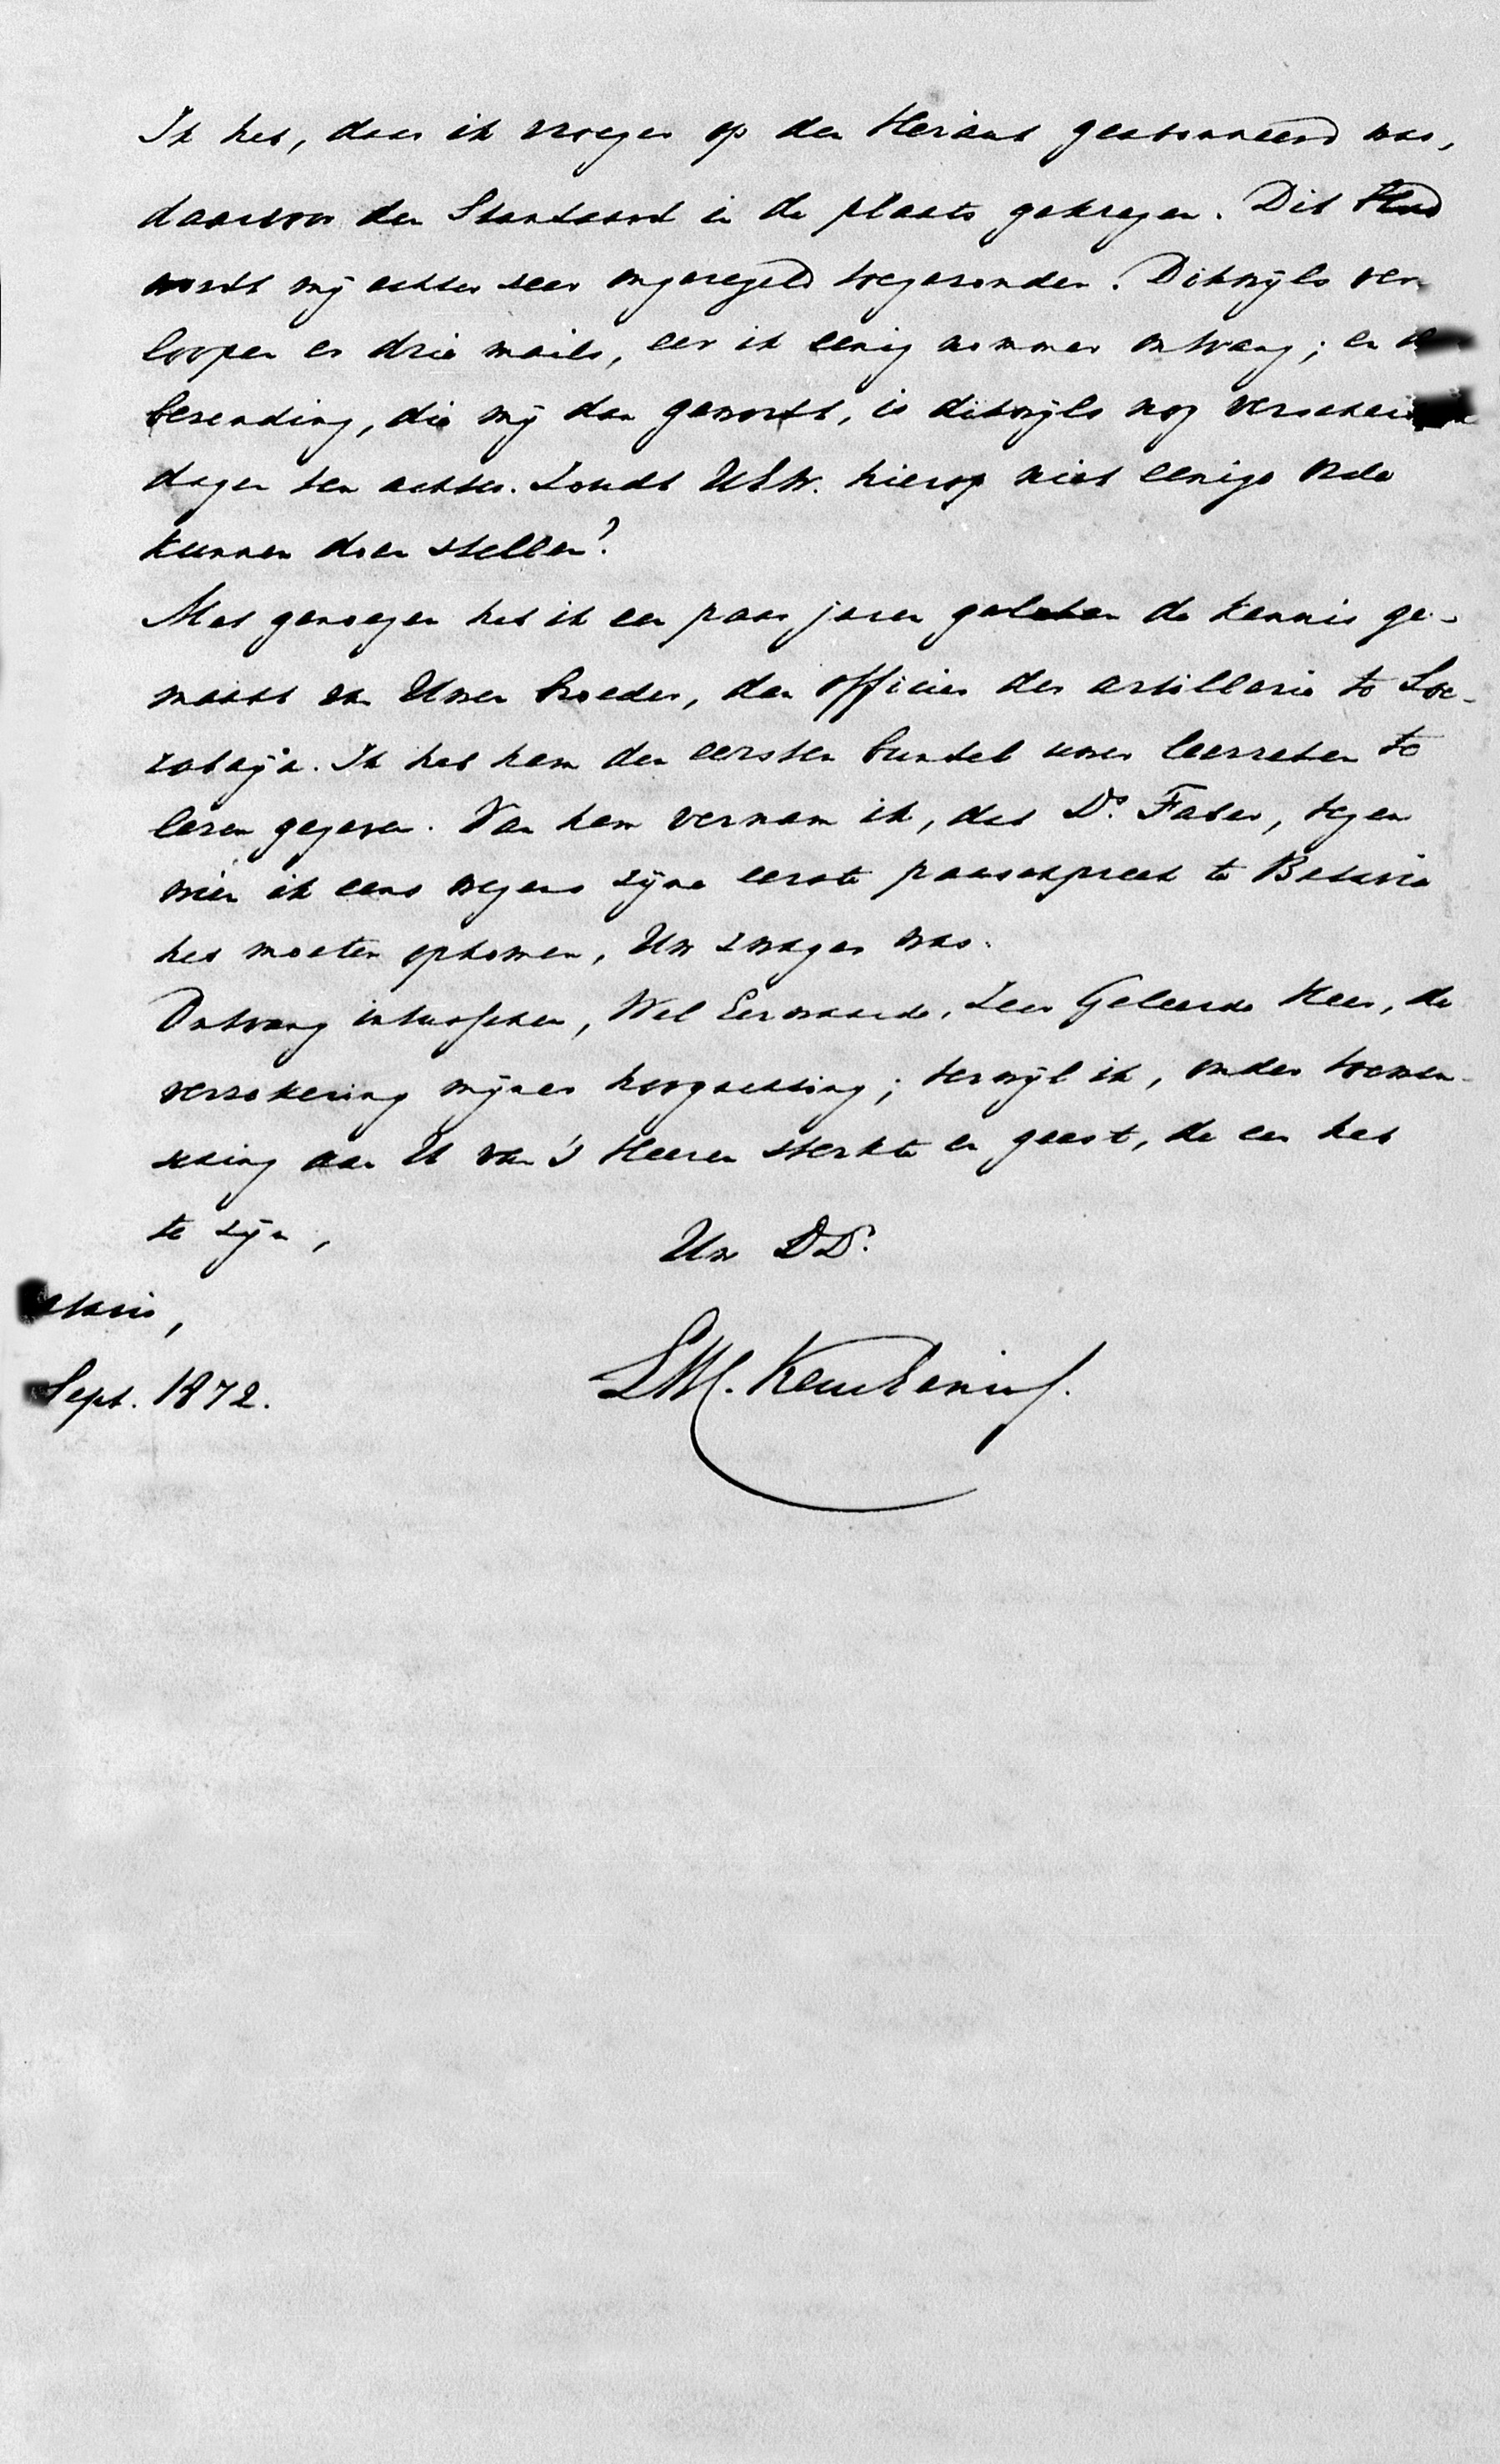 Ik heb, daar ik vroeger op den Heraut geabonneerd was,
daarvoor den Standaard in de plaats gekregen. Dit blad
wordt mij echter zeer ongeregeld toegezonden. Dikwijls ver-
loopen er drie mails, eer ik eenig nommer ontvang; en de
bezending, die mij dan gewordt, is dikwijls nog verscheidene
dagen ten achter. Zoudt UEW. hierop niet eenige orde
kunnen doen stellen?
Met genoegen heb ik een paar jaren geleden de kennis ge-
maakt van Uwen broeder, den officier der artillerie te Soe-
rabaija. Ik heb hem den eersten bundel uwer leerreden te
lezen gegeven. Van hem vernam ik, dat Ds. Faber, tegen
wien ik eens wegens zijne eerste paaschpreek te Batavia
heb moeten opkomen, Uw zwager was.
Ontvang intusschen, Wel Eerwaarde, Zeer Geleerde Heer, de
verzekering mijner hoogachting; terwijl ik, onder toewen-
sching aan U van 's Heeren sterkte en geest, de eer heb
te zijn,
Uw DD.
atavia,
Sept. 1872.
LWC. Keuchenius.